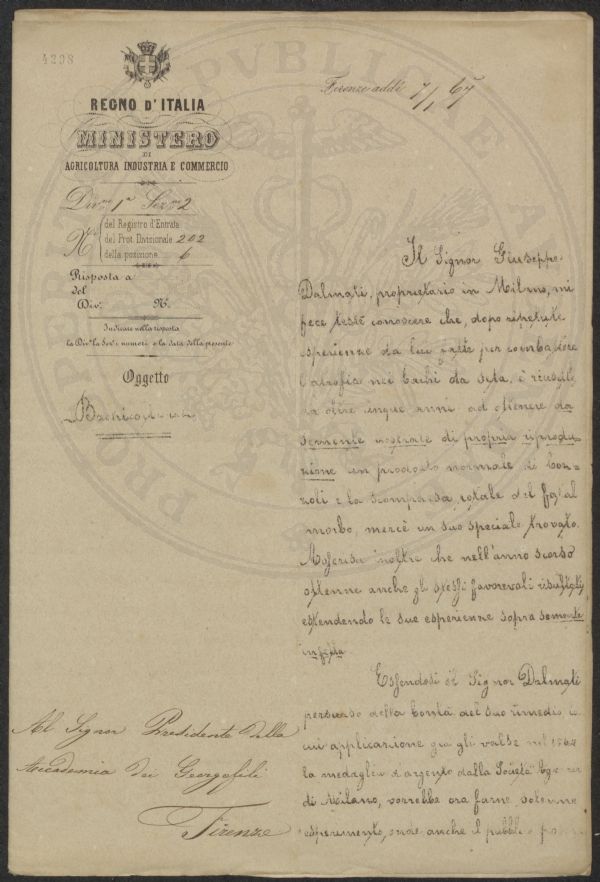 4298
REGNO D'ITALIA
MINISTERO
DI
AGRICOLTURA INDUSTRIA E COMMERCIO
Div.ne 1ª Sez.ne 2
N.
del Registro d'Entrata
del Prot. Divisionale 202
della posizione 6
Risposta a
del
Div. N.
Indicare nella risposta
la Div. la Sez. i numeri e la data della presente
Oggetto
Bachicoltura
Al Signor Presidente della
Accademia dei Georgofili
Firenze
Firenze addì 7/1 67
Il Signor Giuseppe
Dalmati, proprietario in Milano, mi
fece testè conoscere che, dopo ripetute
esperienze da lui fatte per combattere
l'atrofia nei bachi da seta, è riuscito
da oltre cinque anni ad ottenere da
semente nostrale di propria riprodu-
zione un prodotto normale di boz-
zoli e la scomparsa totale del fatal
morbo, mercè un suo speciale trovato.
inoltre che nell'anno scorso
ottenne anche gli stessi favorevoli risultati
estendendo le sue esperienze sopra semente
infetta.
Essendosi il Signor Dalmati
persuaso della bontà del suo rimedio la
cui applicazione già gli valse nel
la medaglia d'argento dalla Società
di Milano, vorrebbe ora farne solenne
esperimento, onde anche il pubblico